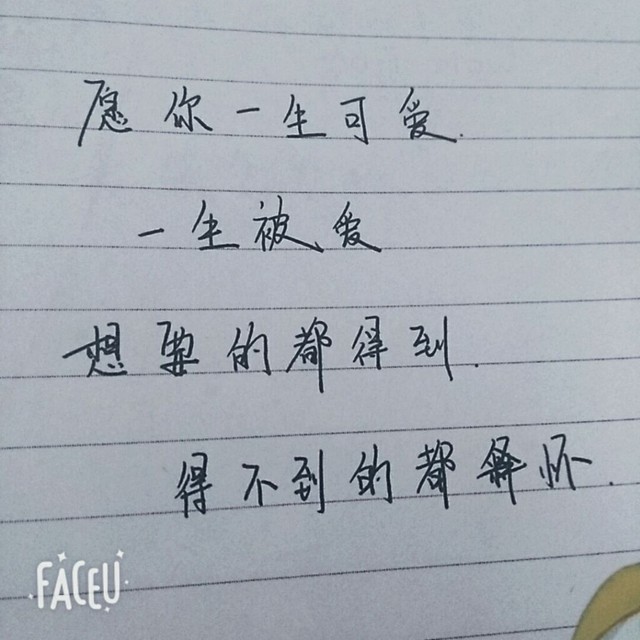 愿你一生可爱.
一生被爱
想要的都得到.
得不到的都释怀.
FACEU